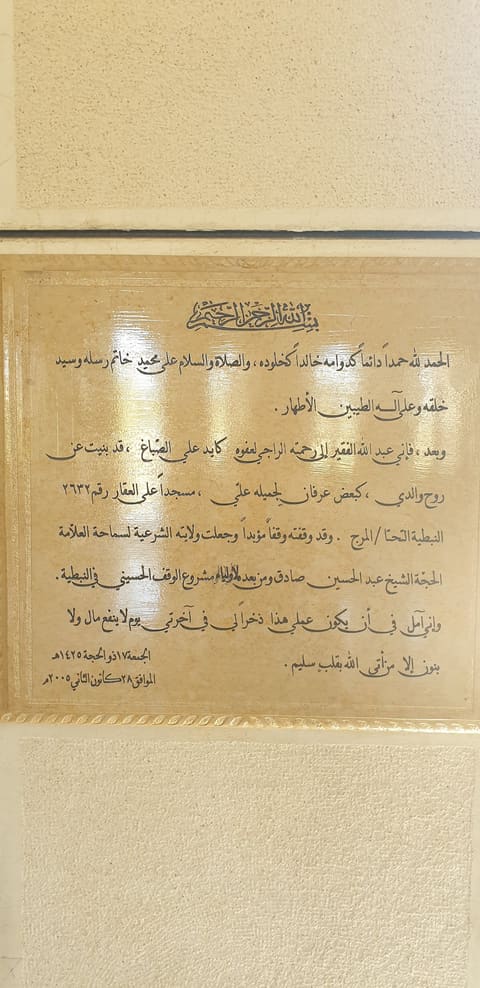 بسم الله الرحمن الرحيم
الحمد لله حمداً دائماً كدوامه خالداً كخلوده ، والصلاة والسلام على محمد خاتم رسله وسيد
خلقه وعلى آله الطيبين الأطهار .
وبعد ، فإني عبد الله الفقير إلى رحمته الراجي لعفوه كايد علي الصبّاغ ، قد بنيت عن
روح والدي ، كبعض عرفان لجميله علي ، مسجداً على العقار رقم ٢٦٣٢
النبطية التحتا / المرج . وقد وقفته وقفاً مؤبداً وجعلت ولايته الشرعية لسماحة العلامة
الحجّة الشيخ عبد الحسين صادق ومن بعده لأولياء مشروع الوقف الحسيني في النبطية .
وإني آمل في أن يكون عملي هذا ذخراً لي في آخرتي يوم لا ينفع مال ولا
بنون إلا من أتى الله بقلب سليم .
الجمعة ١٧ ذو الحجة ١٤٢٥هـ
الموافق ٢٨ كانون الثاني ٢٠٠٥م